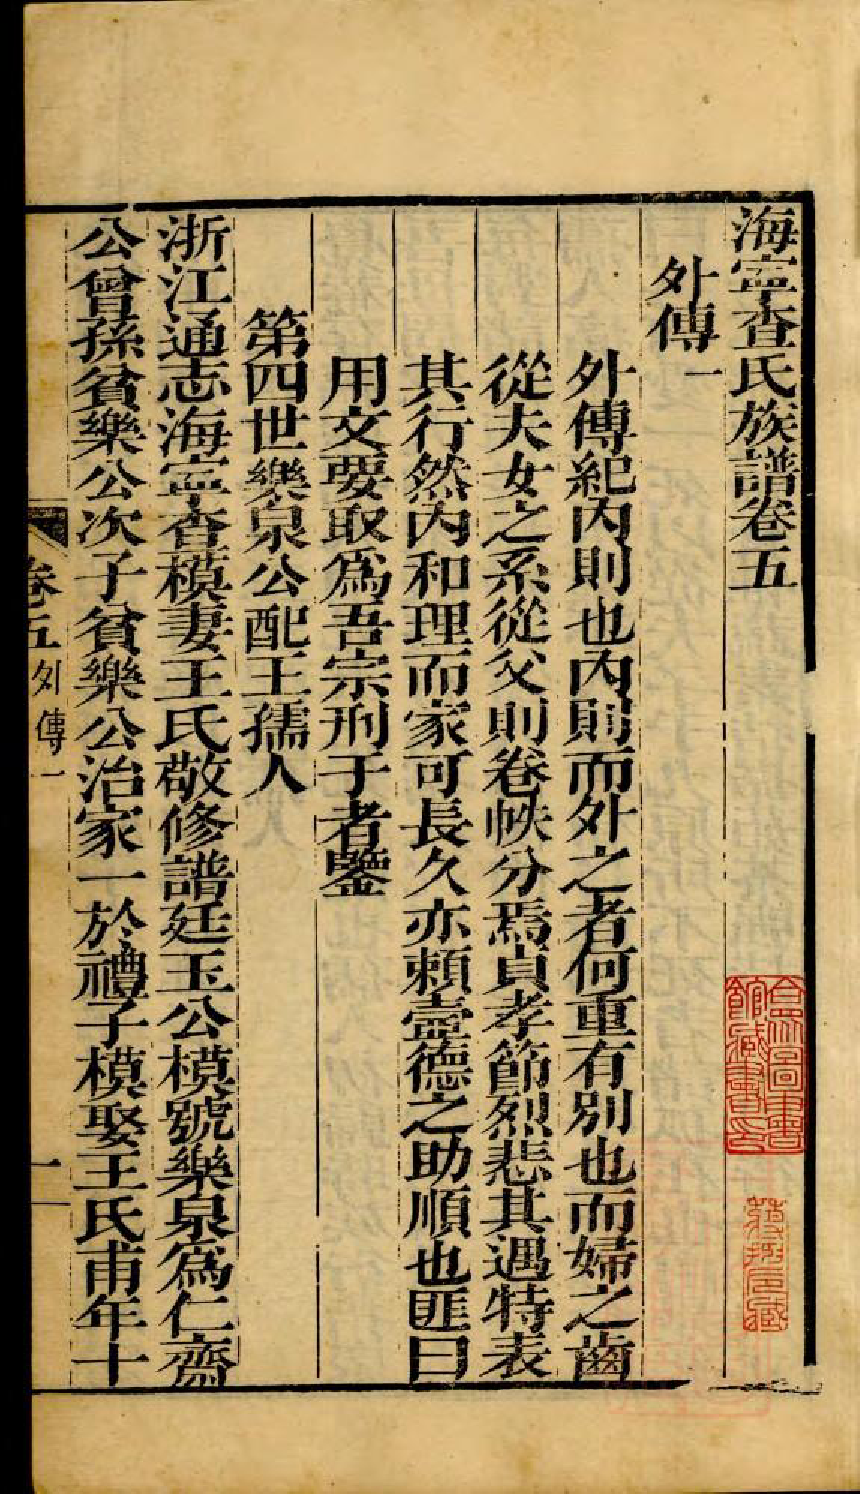 海寧查氏族譜卷五
外傳一
外傳紀内則也内則而外之者何重有別也而婦之齒
從夫女之系從父則卷帙分焉貞孝節烈悲其遇特表
其行然内和理而家可長久亦賴壼德之助順也匪曰
用文要取爲吾宗刑于者鑒
第四世樂泉公配王孺人
浙江通志海寧查模妻王氏敬修譜廷玉公模號樂泉爲仁齋
公曾孫貧樂公次子貧樂公治家一於禮子模娶王氏甫年十
卷五 外傳一 一
圖書
館藏書